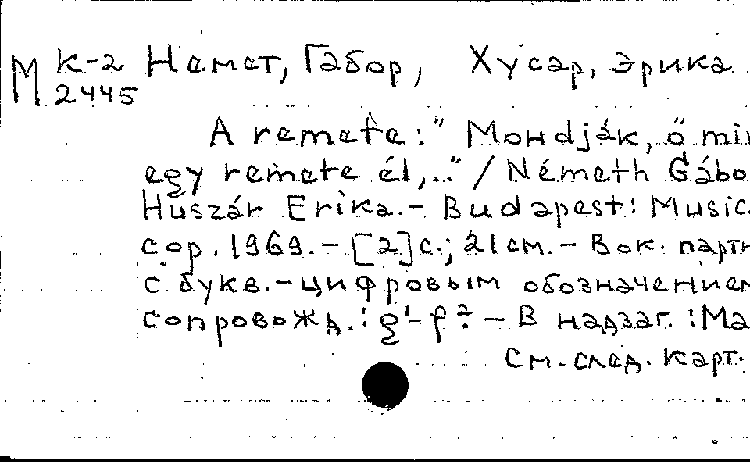 М К-2 Немет, Габор, Хусар, Эрика
2445
A remete: "Mondják, ő min
egy remete él,..." / Németh Gábo
Huszár Erika. - Budapest: Music
cop. 1969. - [2] с.; 21 см. - Вок. парти
с букв.-цифровым обозначением
сопровожд.: g¹-f². - В надзаг.: Ma
См. след. карт.